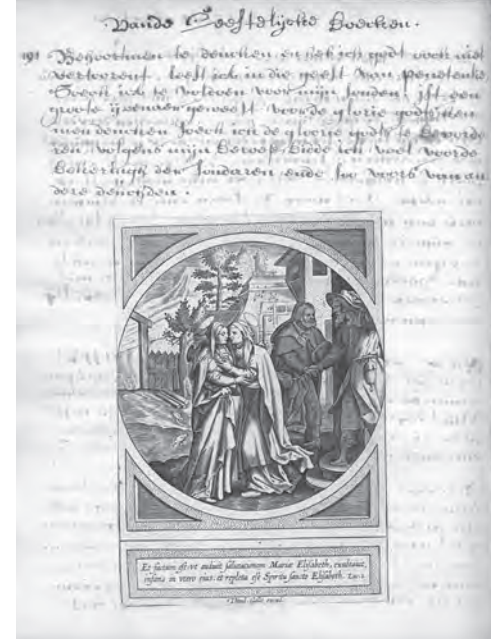 Vande Geestelijcke Boecken.
191 Behoortmen te dencken en heb ick godt oock niet
vertorent, leeft ick in die geest van penetentie,
Soeckt ick te voldoen voor mijn sonden, ist een
groote ijveraer geweest voor de glorie godts, men
men dencken soeck ick de glorie godts te bevorde
ren volgens mijn beroep, bidde ick veel voor de
bekeringh der sondaren ende soo voorts van an
dere deuchden.
Et factum est vt audiuit salutationem Mariæ Elisabeth, exultauit
infans in vtero eius, et repleta est Spiritu sancto Elisabeth. Luc. 1.
Theod. Galle excud.